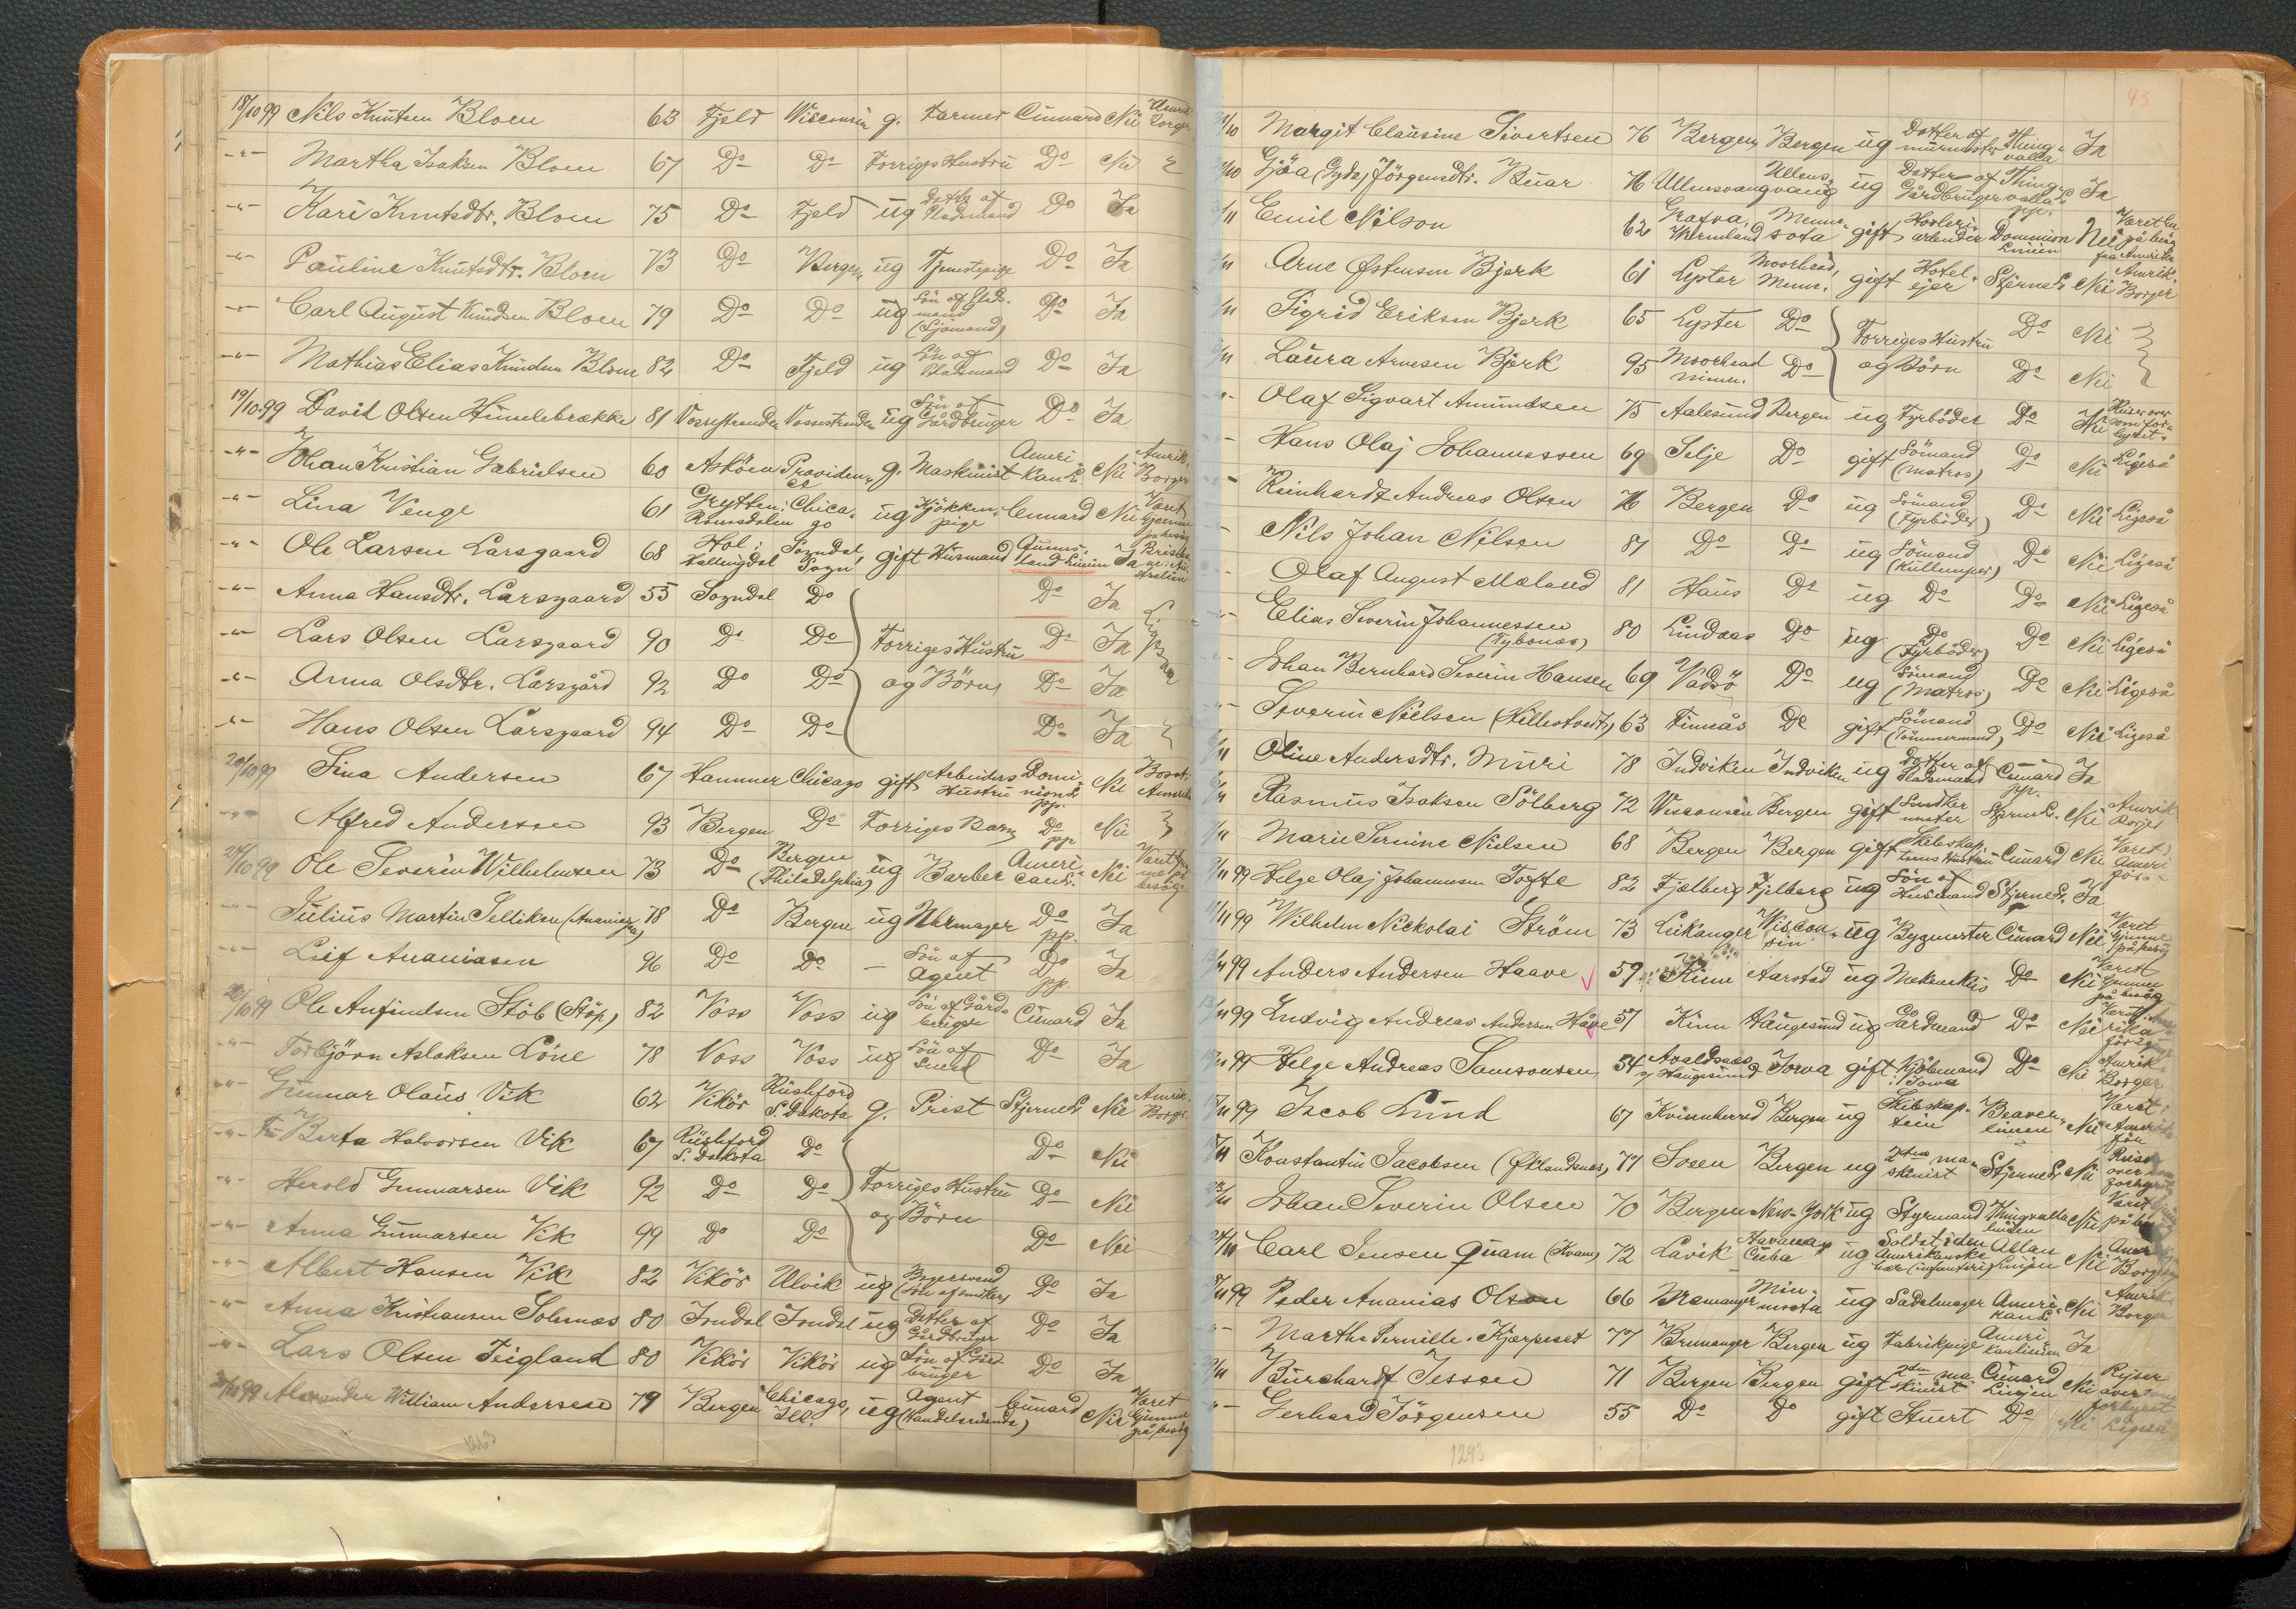 18/10 99 Nils Knutsen Bloen 63 Fjeld Wisconsin g. Farmer Cunnard Nei Amrik. Borger
-"- Martha Isaksen Bloen 67 Do Do Forriges Hustru Do Nei
-"- Kari Knutsdtr. Bloen 75 Do Fjeld ug Datter af Pladsmand Do Ja
-"- Pauline Knutsdtr. Bloen 73 Do Bergen ug Tjenestepige Do Ja
-"- Carl August Knudsen Bloen 79 Do Do ug Sön af Pladsmand (Sjömand) Do Ja
-"- Mathias Elias Knudsen Bloen 82 Do Fjeld ug Sön af Pladsmand Do Ja
19/10 99 David Olsen Himlebrække 81 Vossestranden Vossestranden ug Sön af Gårdbruger Do Ja
-"- Johan Kristian Gabrielsen 60 Asköen Providence g. Maskinist Amerikan L. Nei Amrik. Borger
-"- Lina Venge 61 Grytten i Romsdalen Chicago ug Kjökkenpige Cunnard Nei Været hjemme på besög
-"- Ole Larsen Larsgaard 68 Hol i Hallingdal Sogndal, Sogn gift Husmand Queensland Linien Ja Brisbane i Australien
-"- Anna Hansdtr. Larsgaard 55 Sogndal Do Do Ja
-"- Lars Olsen Larsgaard 90 Do Do Forriges Hustru Do Ja Ligeså
-"- Anna Olsdtr. Larsgård 92 Do Do og Börn Do Ja
-"- Hans Olsen Larsgaard 94 Do Do Do Ja
20/10 99 Sina Andersen 67 Hammer Chicago gift Arbeiders Hustru Dominion L. pp. Nei Bosat i Amerika
-"- Alfred Andersen 93 Bergen Do Forriges Barn Do pp Nei
24/10 99 Ole Severin Wilhelmsen 73 Do Bergen (Philadelphia) ug Barber American L. Nei Været hjemme på besög
-"- Julius Martin Selliken (Ananiassen) 78 Do Bergen ug Uhrmager Do pp. Ja
-"- Leif Ananiasen 96 Do Do — Sön af Agent Do pp. Ja
/10 99 Ole Anfindsen Stöb (Stöp) 82 Voss Voss ug Sön af Gårdbruger Cunard Ja
-"- Torbjörn Aslaksen Löne 78 Voss Voss ug Sön af Smed Do Ja
-"- Gunnar Olaus Vik 62 Vikör Rushford S. Dakota g. Prest Stjerne L. Nei Amrik. Borger
-"- Berta Halvorsen Vik 67 Rushford S. Dakota Do Do Nei
-"- Herold Gunnarsen Vik 92 Do Do Forriges Hustru og Börn Do Nei
-"- Anna Gunnarsen Vik 99 Do Do Do Nei
-"- Albert Hansen Vik 82 Vikör Ulvik ug Bagersvend (Sön af Snedker) Do Ja
-"- Anna Kristiansen Solesnæs 80 Jondal Jondal ug Datter af Gårdbruger Do Ja
-"- Lars Olsen Teigland 80 Vikör Vikör ug Sön af Gårdbruger Do Ja
/10 99 Alexander William Andersen 79 Bergen Chicago, Ill. ug Agent (Handelsreisende) Cunard Nei Været hjemme på besög
1263
43
/10 Margit Clausine Sivertsen 76 Bergen Bergen ug Datter af murmester Thingvalla Ja
/10 Gjöa (Gyda) Jörgensdtr. Buar 76 Ullensvang Ullensvang ug Datter af Gårdbruger Thingvalla pp. Ja
3/11 Emil Nilson 62 Grafva, Wermland Minnesota gift arbeider Dominion Linien Nei på besög fra Amerika
3/11 Arne Østensen Bjerk 61 Lyster Moorhead, Minn. gift Hoteleier Stjerne L. Nei Amrik. Borger
3/11 Sigrid Eriksen Bjerk 65 Lyster Do Forriges Hustru Do Nei
3/11 Laura Arnesen Bjerk 95 Moorhead Minn. Do og Börn Do Nei
-"- Olaf Sigvart Amundsen 75 Aalesund Bergen ug Fyrböder Do Nei Reiser over som forhyret
-"- Hans Olaj Johannessen 69 Selje Do gift Sömand (Matros) Do Nei Ligeså
-"- Reinhardt Andreas Olsen 76 Bergen Do ug Sömand (Fyrböder) Do Nei Ligeså
-"- Nils Johan Nilsen 81 Do Do ug Sömand (Kullemper) Do Nei Ligeså
-"- Olaf August Mæland 81 Haus Do ug Do Do Nei Ligeså
-"- Elias Severin Johannessen (Tybones) 80 Lindaas Do ug Do (Fyrböder) Do Nei Ligeså
-"- Johan Bernhard Severin Hansen 69 Vadsö Do ug Sömand (Matros) Do Nei Ligeså
-"- Severin Nielsen (Hillestvedt) 63 Finnås Do gift Sömand (Tömmermand) Do Nei Ligeså
/11 Oline Andersdtr. Muri 78 Indviken Indviken ug Datter af Pladsmand Cunard pp. Ja
/11 Rasmus Isaksen Sölberg 72 Wisconsin Bergen gift Stjerne L. Nei Amrik Borger
/11 Marie Sernine Nielsen 68 Bergen Bergen gift Skibskapteins Hustru Cunard Nei Været i Ameri för
9/11 99 Helge Olaj Johannessen Tofte 82 Fjælberg Fjelberg ug Sön af Husmand Stjerne L. Ja
11/11 99 Wilhelm Nickolai Ström 73 Leikanger Wisconsin ug Bygmester Cunard Nei Været hjemme på besög
13/11 99 Anders Andersen Haave 59 Kinn Aarstad ug Do Nei Været hjemme på besög
13/11 99 Ludvig Andreas Andersen Håve 57 Kinn Haugesund ug Gårdmand Do Nei Været i Amerika för
/11 99 Helge Andreas Samsonsen 54 Avaldsnæs v/ Haugesund Iowa gift Kjöbmand i Iowa Do Nei Amrik. Borger
15/11 99 Jacob Lund 67 Kvinnherred Bergen ug Skibskaptein Beaver linien Nei Været i Amerika för
17/11 Konstantin Jacobsen (Øklandsnæs) 77 Sveen Bergen ug 2den maskinist Stjerne L. Nei Reiser over som forhyret
/11 Johan Severin Olsen 70 Bergen New-York ug Styrmand Thingvalla linien Nei Været på besög
24/11 Carl Jensen Quam (Kvam) 72 Lavik Havana Cuba ug Soldat i den Amerikanske hær (infanteri) Allan Linjen Nei Amer Borger
/11 99 Peder Ananias Olson 66 Bremanger Minnesota ug Sadelmager Amerikan L. Nei Amrik. Borger
-"- Marthe Pernille Kjærpeset 77 Bremanger Bergen ug Fabrikpige Amerikanlinien Ja
/11 Burchardt Jessen 71 Bergen Bergen gift 2den maskinist Cunard Linjen Nei Rejser over som forhyret
-"- Gerhard Jörgensen 55 Do Do gift Stuert Do Nei Ligeså
1293